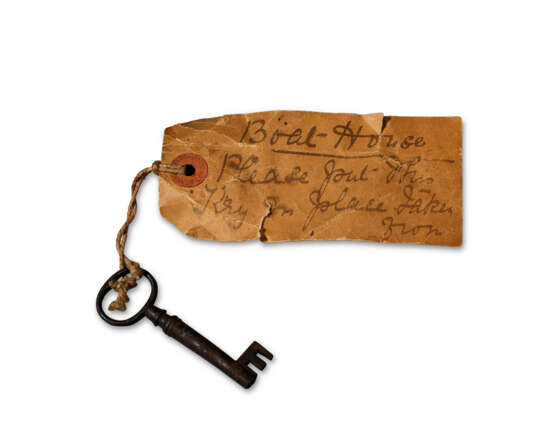 Boat House
Please put this
Key in place taken
from